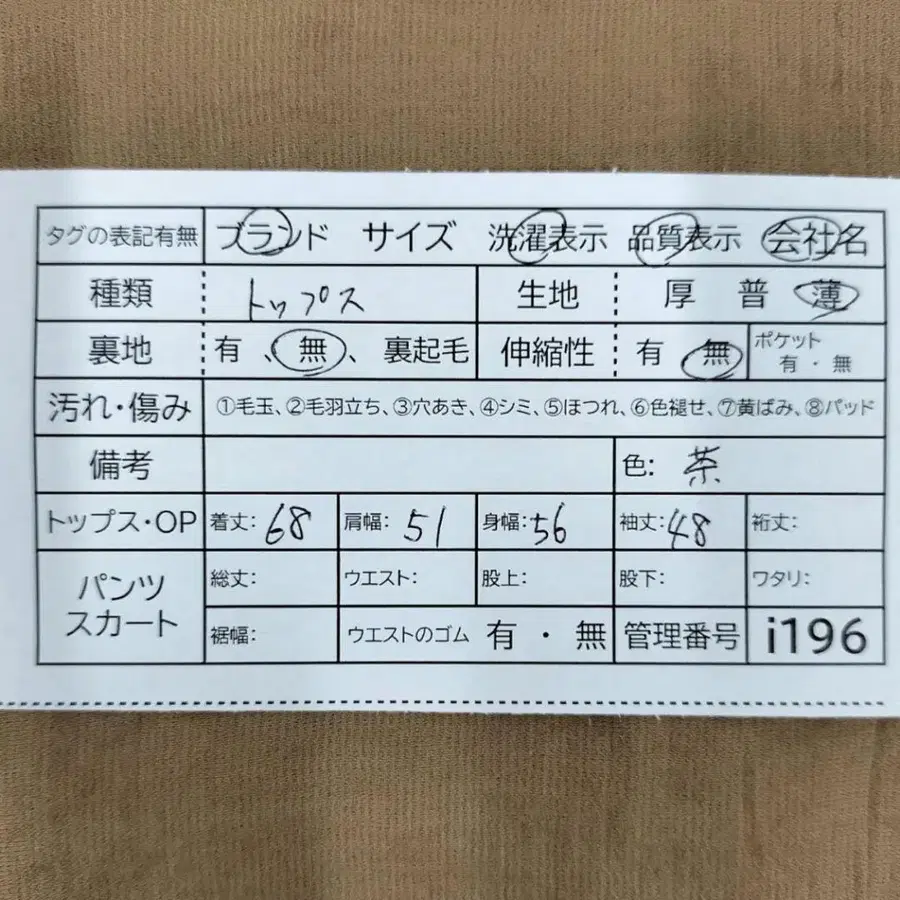 タグの表記有無 ブランド サイズ 洗濯表示 品質表示 会社名
種類 トップス 生地 厚 普 薄
裏地 有、無、裏起毛 伸縮性 有 無 ポケット 有・無
汚れ・傷み ①毛玉、②毛羽立ち、③穴あき、④シミ、⑤ほつれ、⑥色褪せ、⑦黄ばみ、⑧パッド
備考 色: 茶
トップス・OP 着丈: 68 肩幅: 51 身幅: 56 袖丈: 48 裄丈:
パンツ スカート 総丈: ウエスト: 股上: 股下: ワタリ:
裾幅: ウエストのゴム 有・無 管理番号 i196